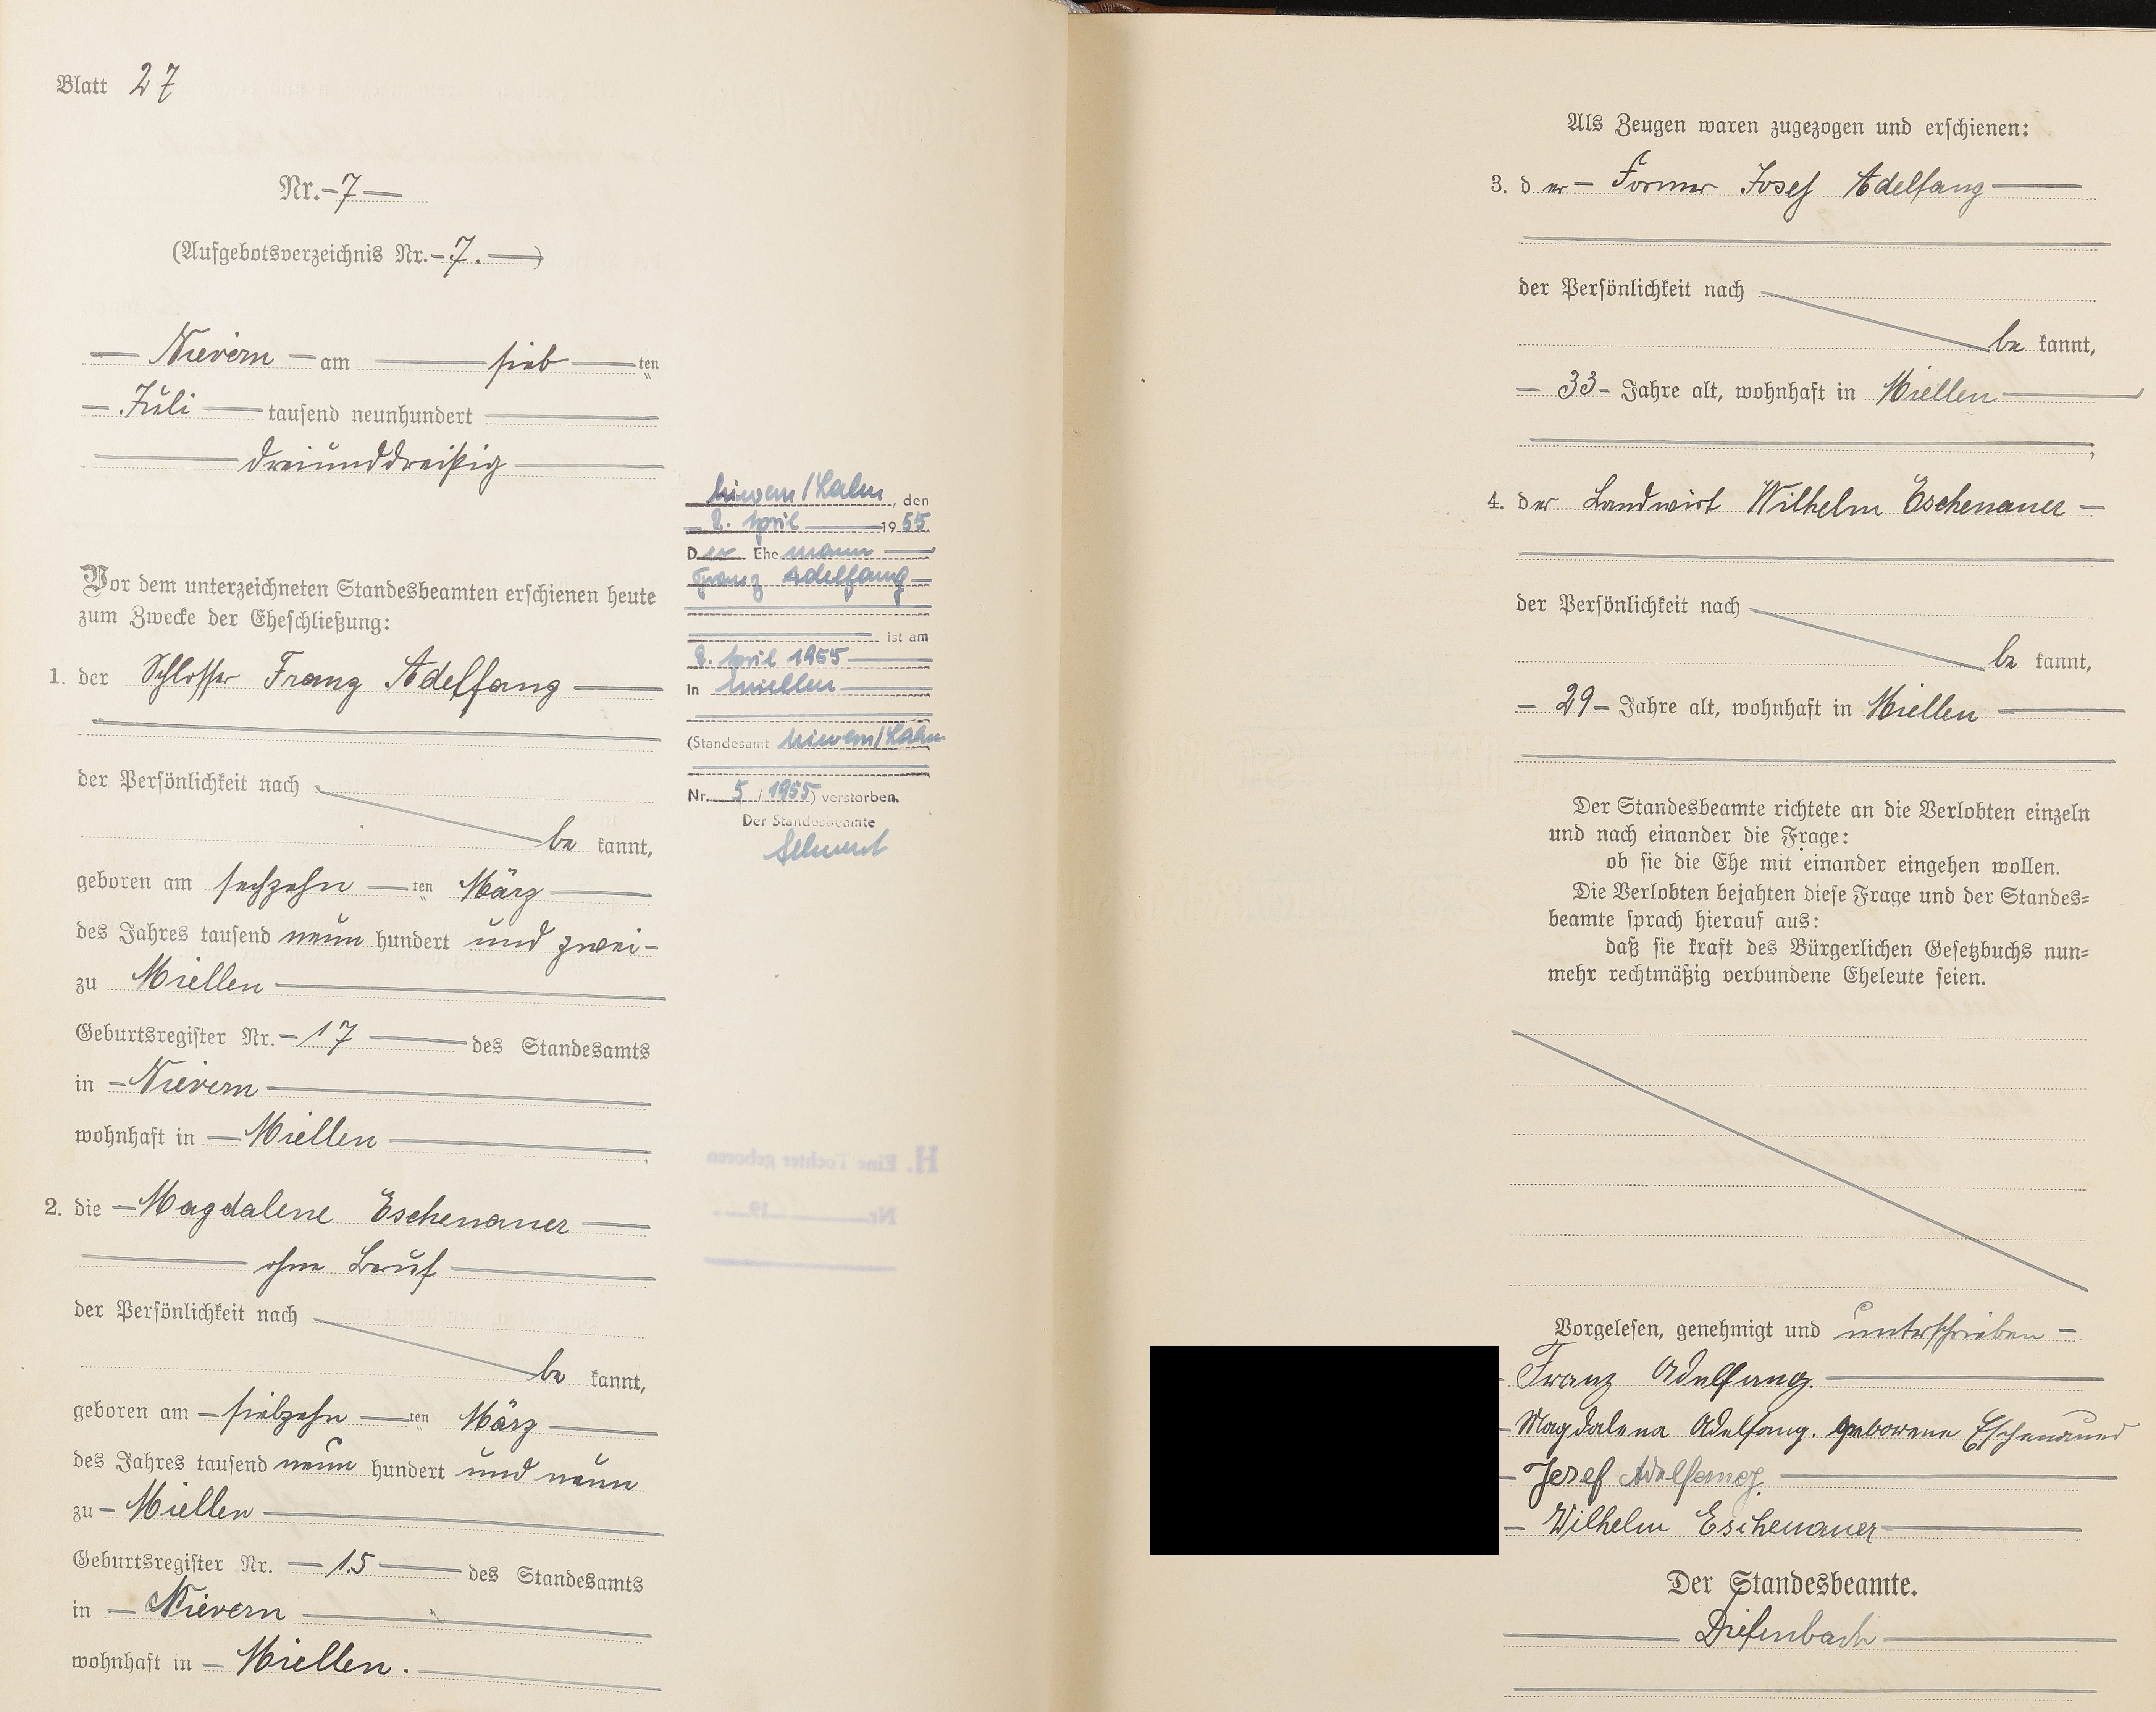 Blatt 27
Nr. 7
(Aufgebotsverzeichnis Nr. 7.)
Nievern am sieb ten
Juli tausend neunhundert
dreiunddreißig
Vor dem unterzeichneten Standesbeamten erschienen heute
zum Zwecke der Eheschließung:
1. der Schlosser Franz Adelfang
der Persönlichkeit nach
be kannt,
geboren am sechzehn ten März
des Jahres tausend neun hundert und zwei
zu Miellen
Geburtsregister Nr. 17 des Standesamts
in Nievern
wohnhaft in Miellen
2. die Magdalene Eschenauer
ohne Beruf
der Persönlichkeit nach
be kannt,
geboren am siebzehn ten März
des Jahres tausend neun hundert und neun
zu Miellen
Geburtsregister Nr. 15 des Standesamts
in Nievern
wohnhaft in Miellen.
Nievern/Lahn, den
April 1955
Der Ehemann
Franz Adelfang
ist am
April 1955
in Miellen
(Standesamt Nievern/Lahn
Nr. 5 / 1955) verstorben.
Der Standesbeamte
H. Eine Tochter geboren
Nr. 19
Als Zeugen waren zugezogen und erschienen:
3. der Former Josef Adelfang
der Persönlichkeit nach
be kannt,
33 Jahre alt, wohnhaft in Miellen
;
4. der Landwirt Wilhelm Eschenauer
der Persönlichkeit nach
be kannt,
29 Jahre alt, wohnhaft in Miellen
Der Standesbeamte richtete an die Verlobten einzeln
und nach einander die Frage:
ob sie die Ehe mit einander eingehen wollen.
Die Verlobten bejahten diese Frage und der Standes=
beamte sprach hierauf aus:
daß sie kraft des Bürgerlichen Gesetzbuchs nun=
mehr rechtmäßig verbundene Eheleute seien.
Vorgelesen, genehmigt und unterschrieben
Franz Adelfang.
Magdalena Adelfang. geborene Eschenauer
Josef Adelfang.
Wilhelm Eschenauer
Der Standesbeamte.
Diefenbach